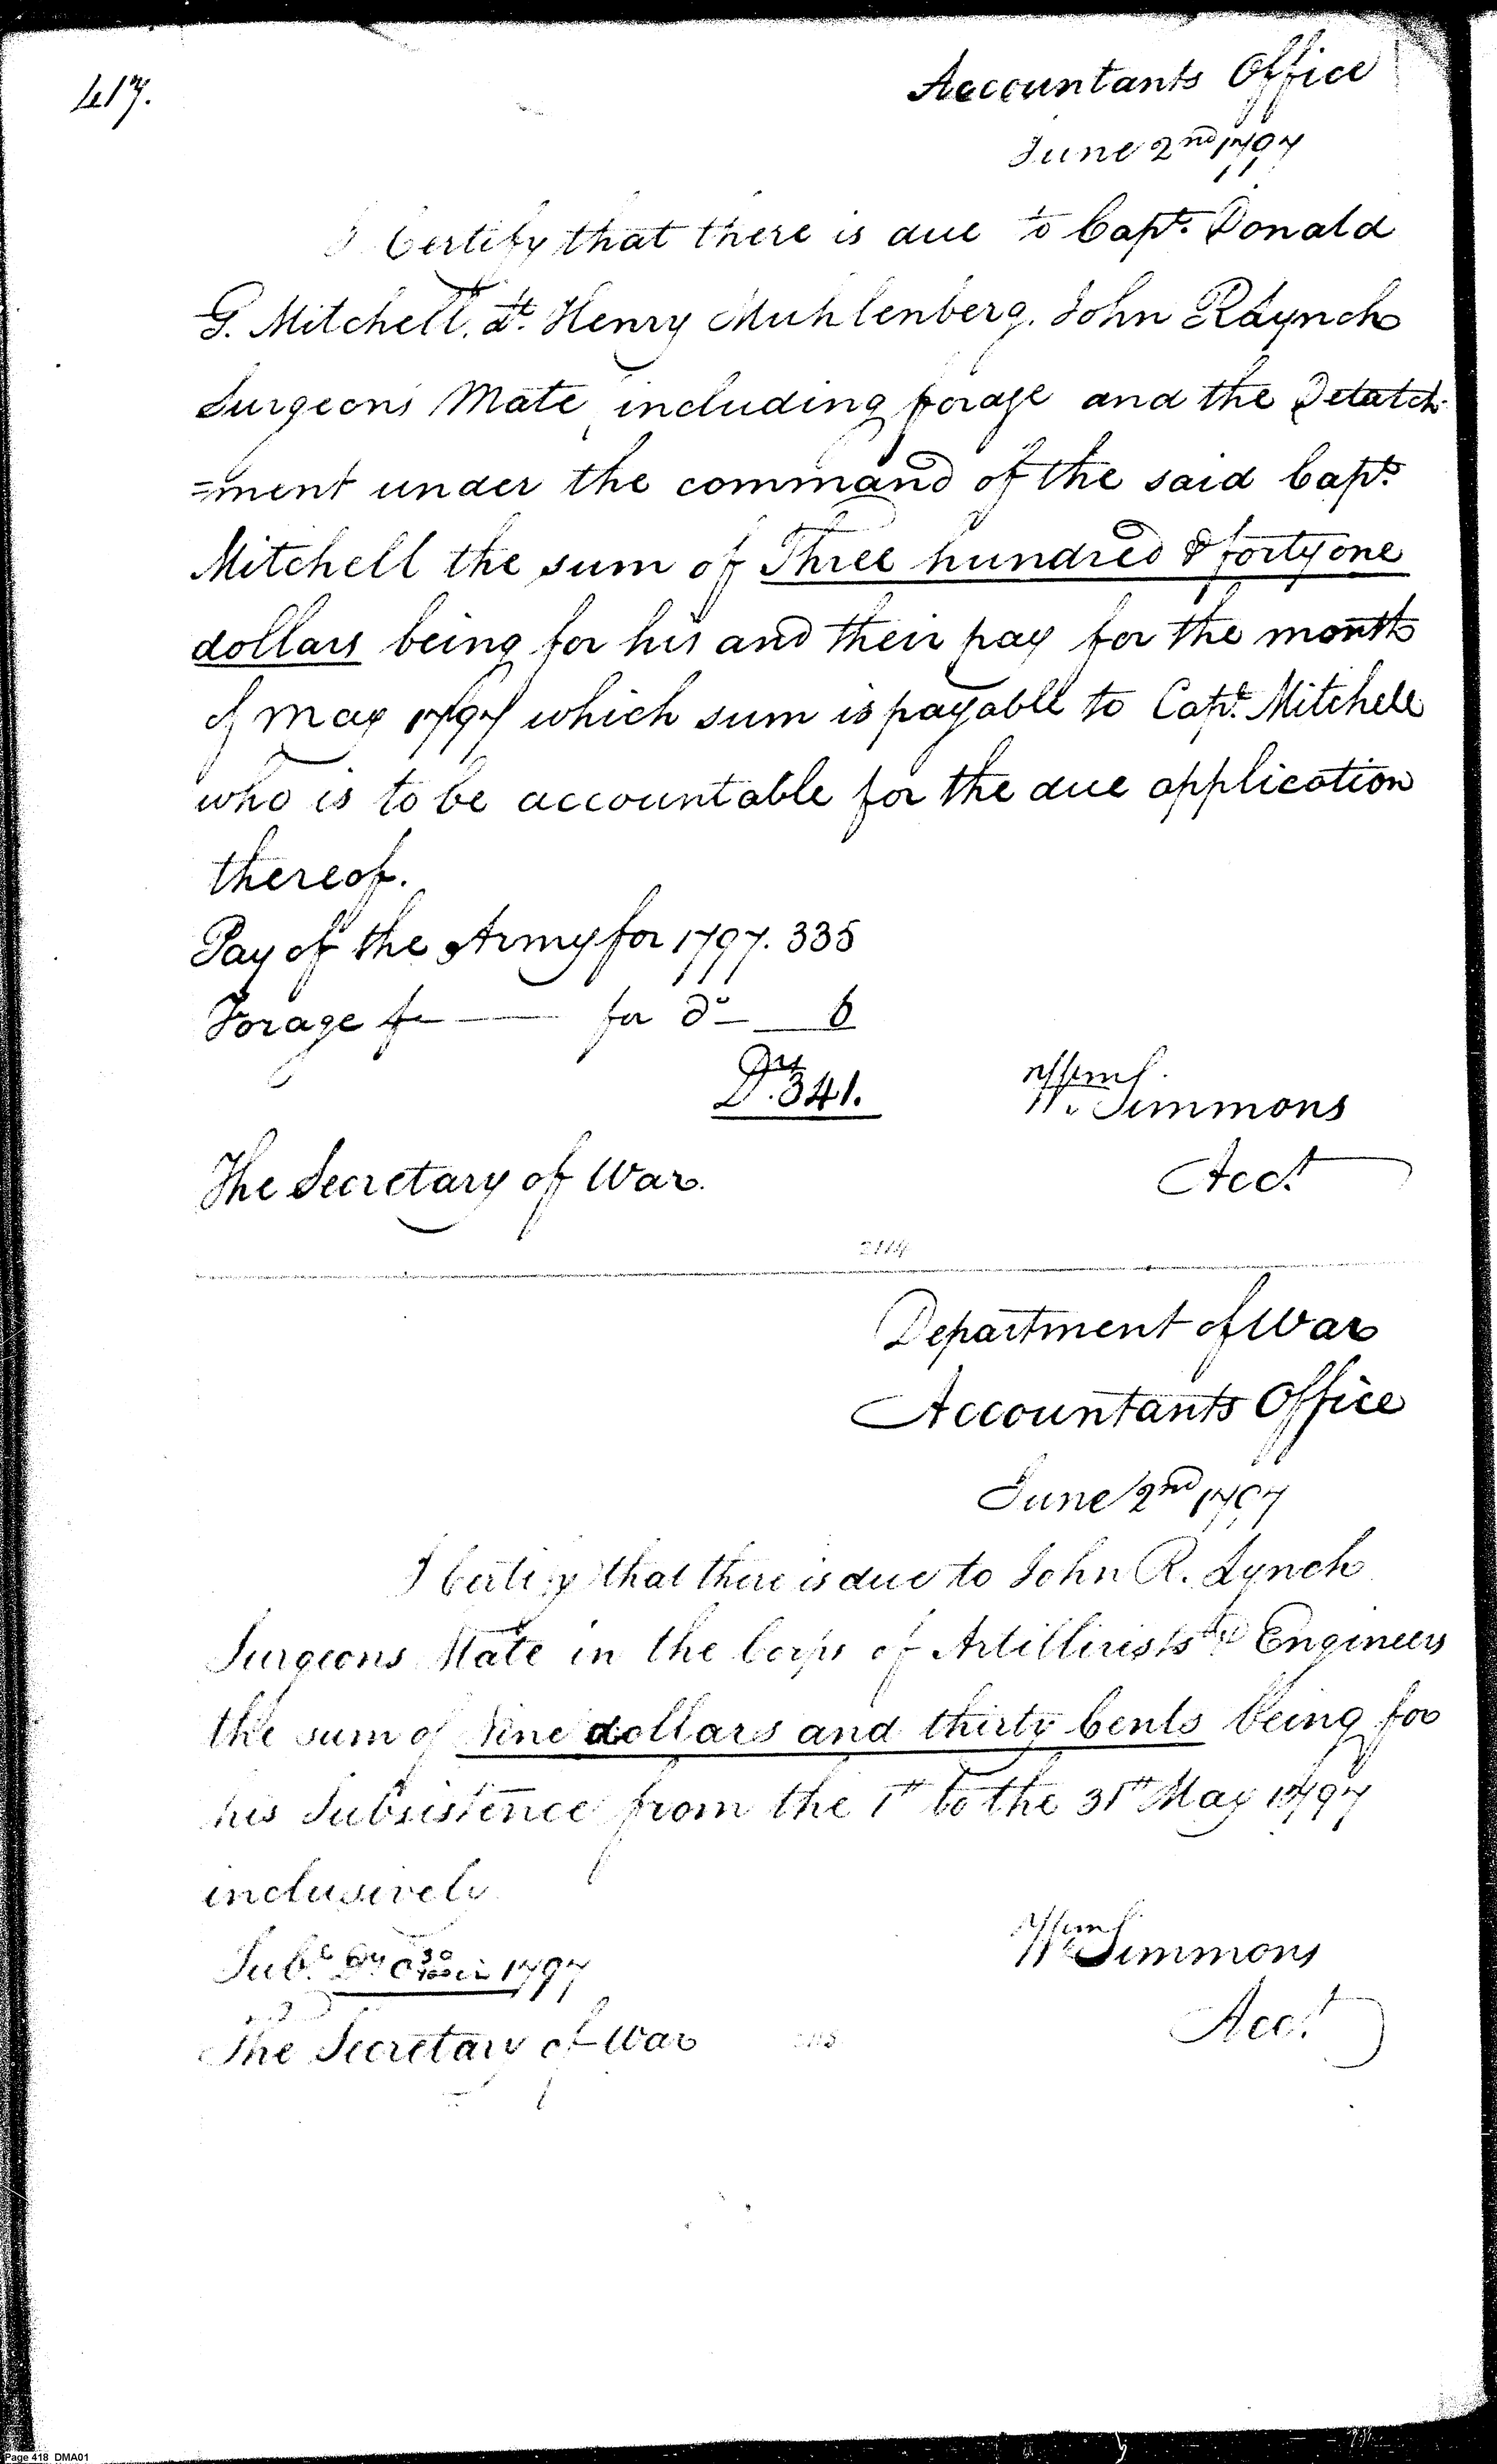 417.
Accountants Office
June 2nd 1797
I Certify that there is due to Capt. Donald
G. Mitchell, Lt. Henry Muhlenberg. John R Lynch
Surgeons Mate, including forage and the Detatch-
=ment under the command of the said Capt.
Mitchell the sum of Three hundred & forty one
dollars being for his and their pay for the month
of May 1797 which sum is payable to Capt. Mitchell
who is to be accountable for the due application
thereof.
Pay of the Army for 1797. 335
Forage for do 6
Drs. 341.
Wm Simmons
Acct
The Secretary of War.
2114
Department of War
Accountants Office
June 2nd 1797
I Certify that there is due to John R. Lynch
Surgeons Mate in the Corps of Artillirists & Engineers
the sum of Nine dollars and thirty Cents being for
his Subsistence from the 1st to the 31st May 1797
inclusively
Sube. Drs 9 30/100 in 1797
Wm Simmons
Acct
The Secretary of War
Page 418 DMA01